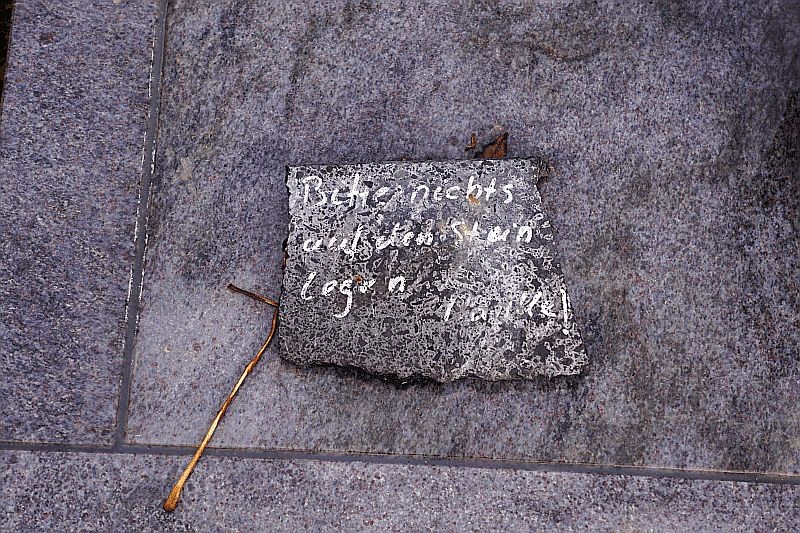 Bitte nichts
auf den Stein
legen